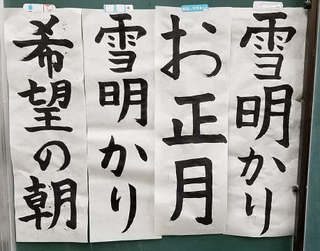 雪明かり
お正月
雪明かり
希望の朝